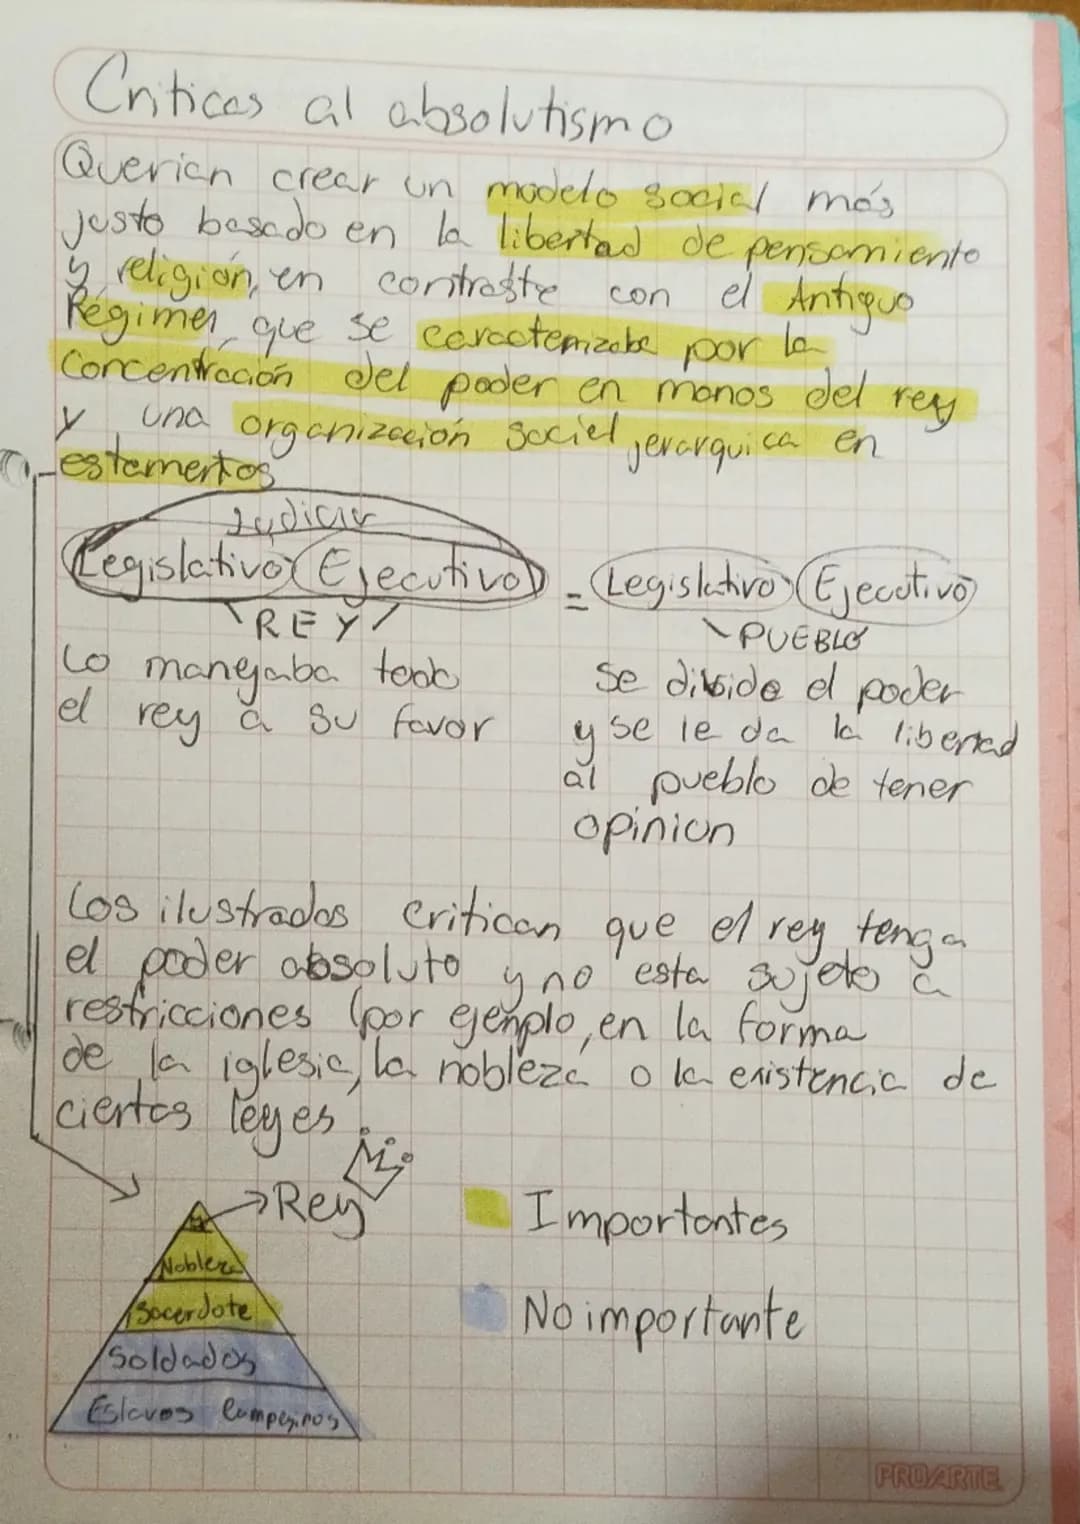 Criticas al absolutismo
Querian crear un modelo social más
justo basado en la libertad de pensamiento
y religión, en contraste con el Antiguo
Régimen, que se caracterizaba por la
Concentración del poder en manos del rey
y una organización social jerarquica en
estamentos
Judicial
Legislativo Ejecutivo = Legislativo Ejecutivo
REY
PUEBLO
Lo manejaba todo
el rey a su favor
se divide el poder
y se le da la libertad
al pueblo de tener
opinion
Los ilustrados critican que el rey tenga
el poder absoluto y no esta sujeto a
restricciones (por ejemplo, en la forma
de la iglesia, la nobleza o la existencia de
ciertas leyes.
→Rey
Nobleza
Sacerdote
Soldados
Eslavos Campesinos
Importantes
No importante
PROARTE